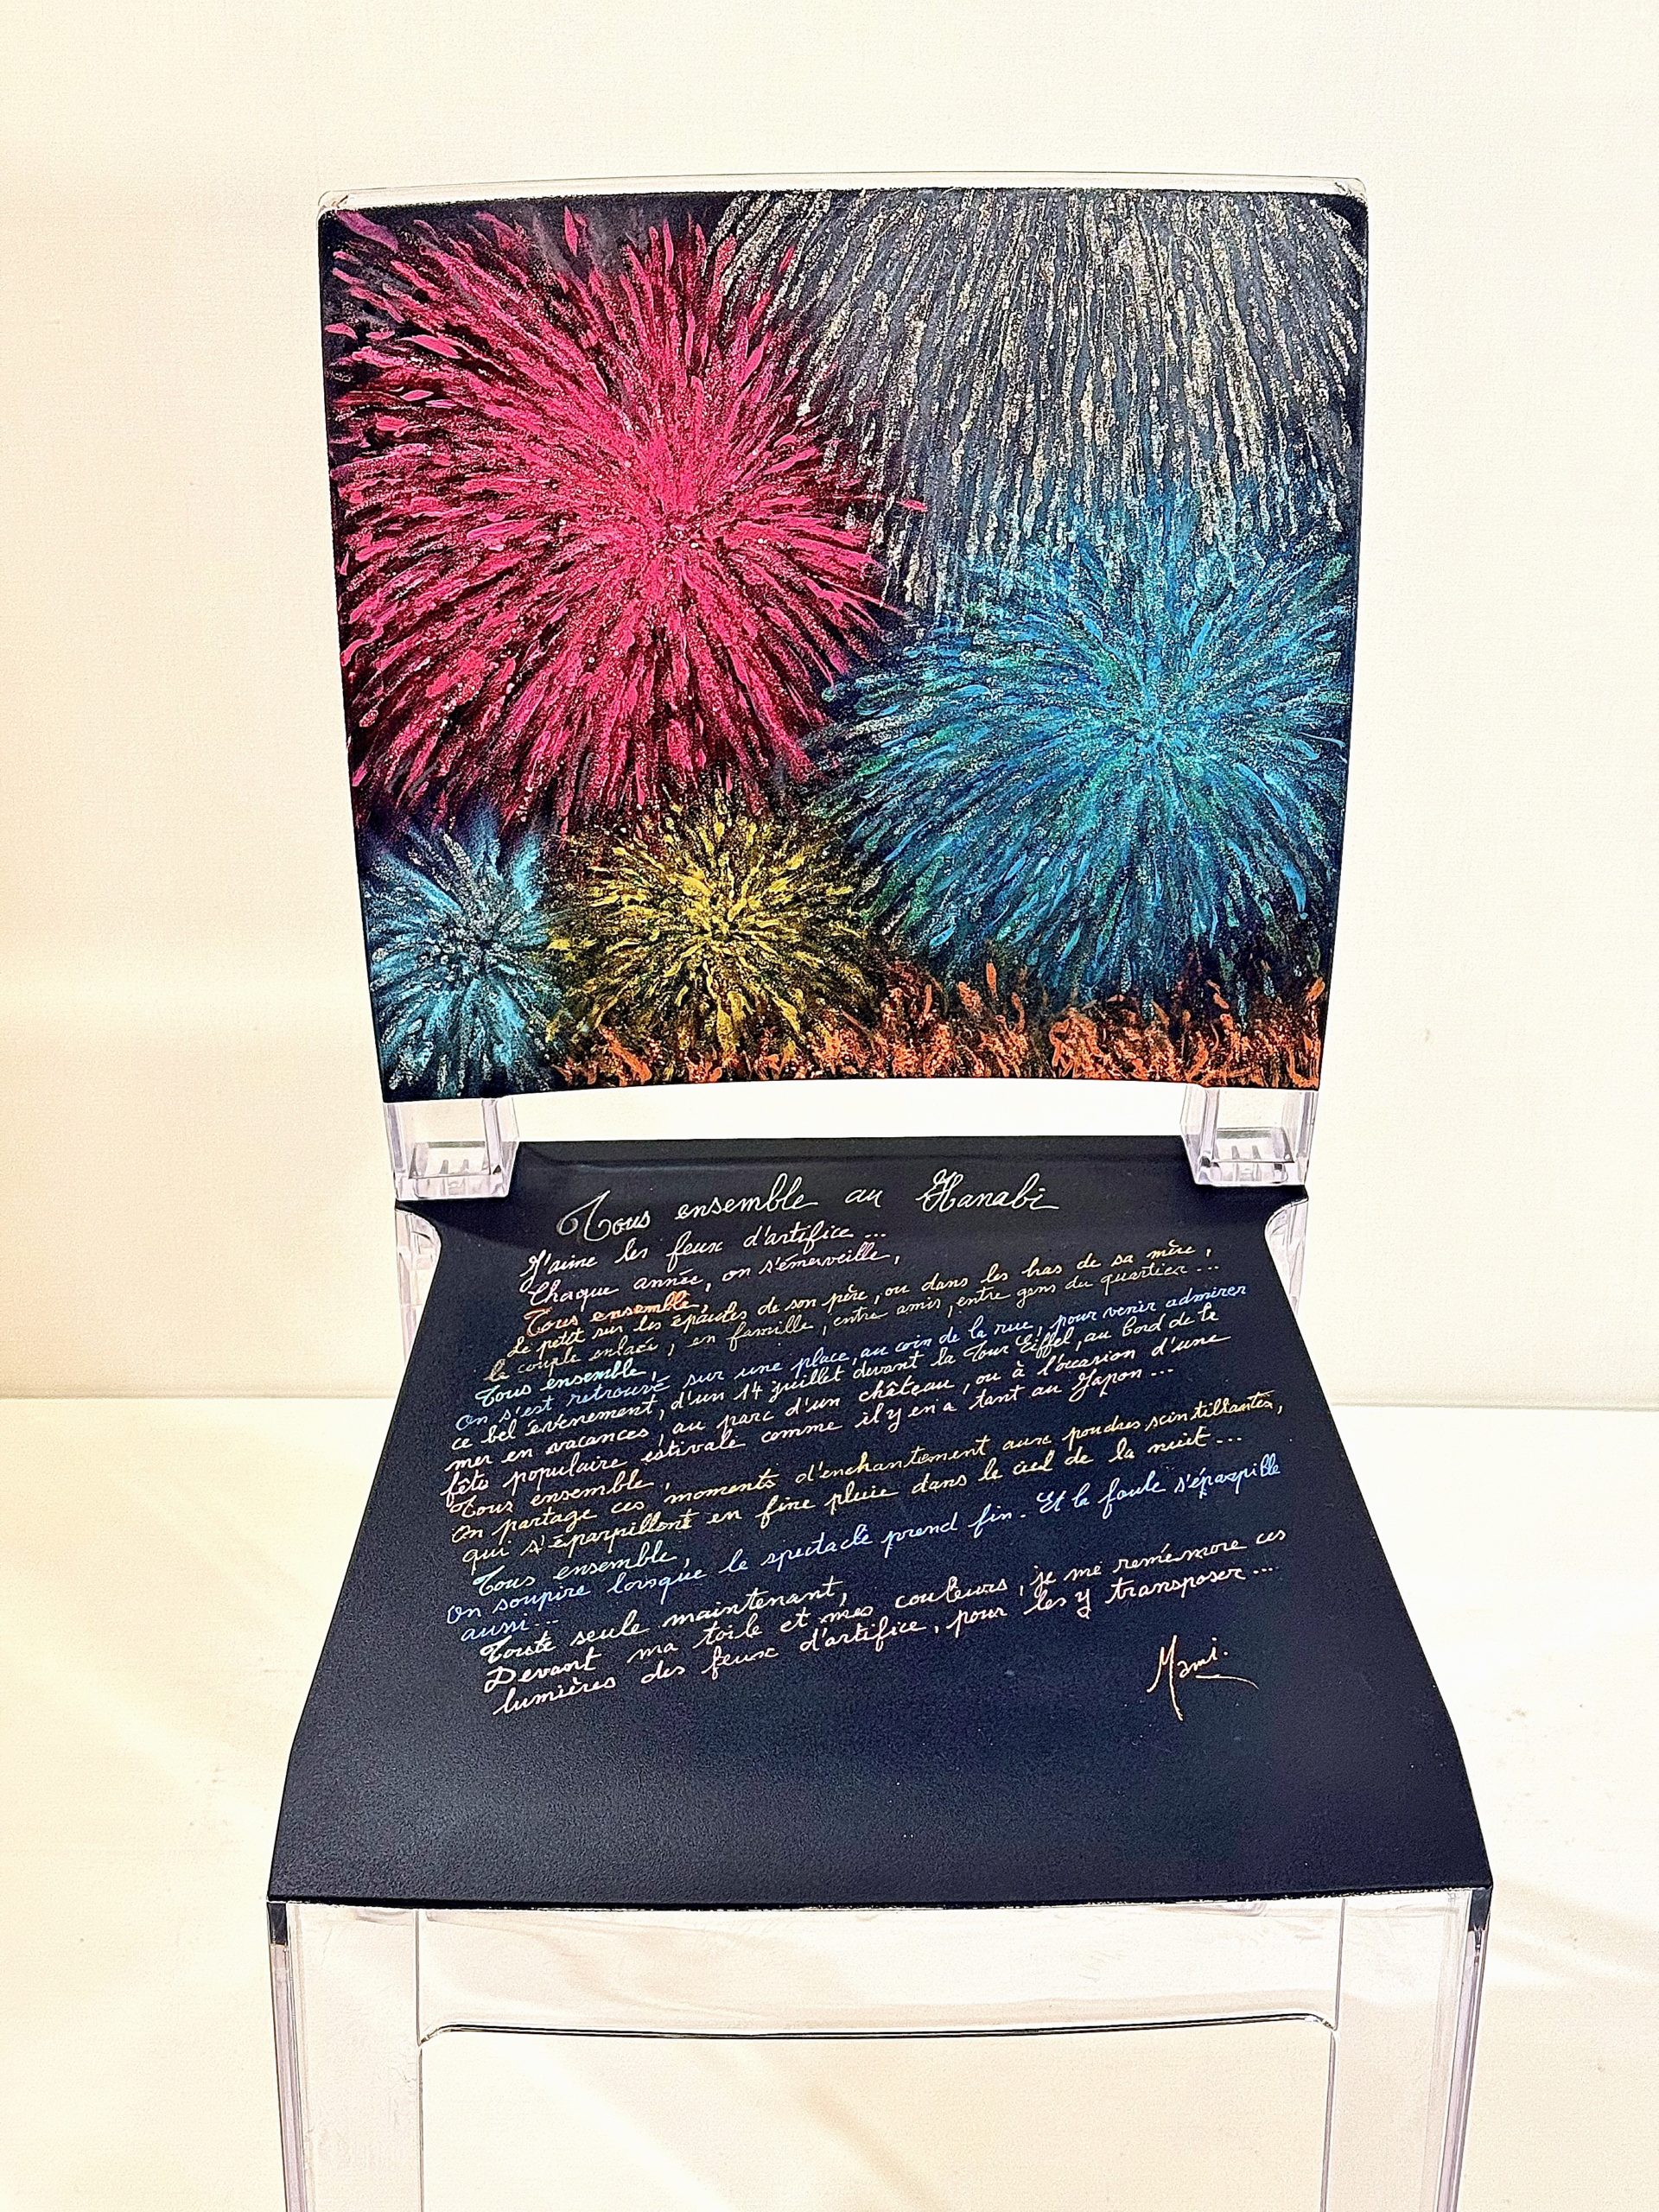 Tous ensemble au Hanabi
J'aime les feux d'artifice...
Chaque année, on s'émerveille,
Tous ensemble,
Le petit sur les épaules de son père, ou dans les bras de sa mère,
le couple enlacé, en famille, entre amis, entre gens du quartier...
Tous ensemble,
On s'est retrouvé sur une place, au coin de la rue, pour venir admirer
ce bel évenement, d'un 14 juillet devant la Tour Eiffel, au bord de la
mer en vacances, au parc d'un château, ou à l'occasion d'une
fête populaire estivale comme il y en a tant au Japon...
Tous ensemble,
On partage ces moments d'enchantement aux poudres scintillantes,
qui s'éparpillent en fine pluie dans le ciel de la nuit...
Tous ensemble,
On soupire lorsque le spectacle prend fin. Et la foule s'éparpille
aussi...
Toute seule maintenant,
Devant ma toile et mes couleurs, je me remémore ces
lumières des feux d'artifice, pour les y transposer....
Mami.